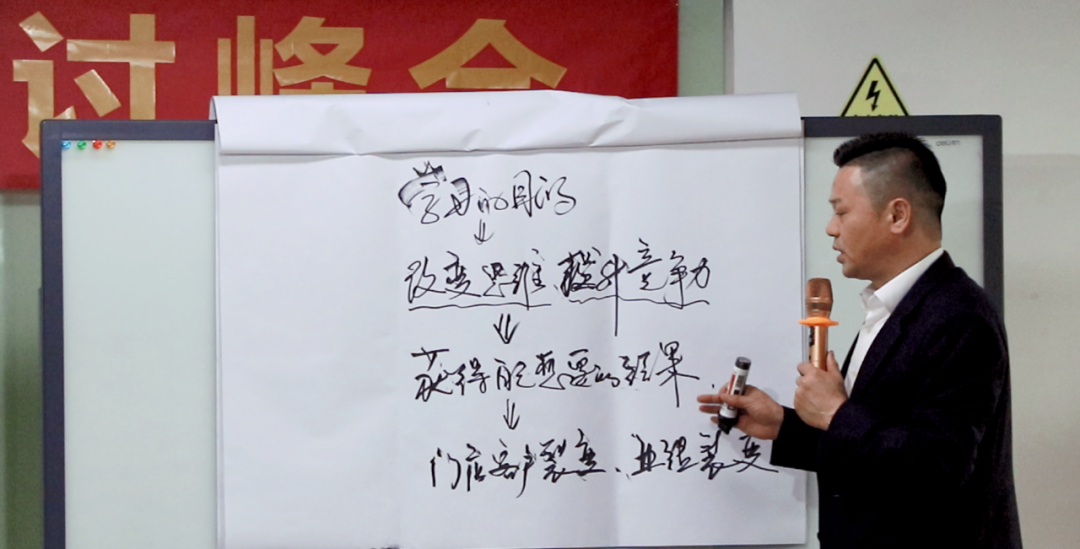 讨峰会
学习的目的
改变思维、提升竞争力
获得自己想要的结果
门店客户裂变、业绩裂变